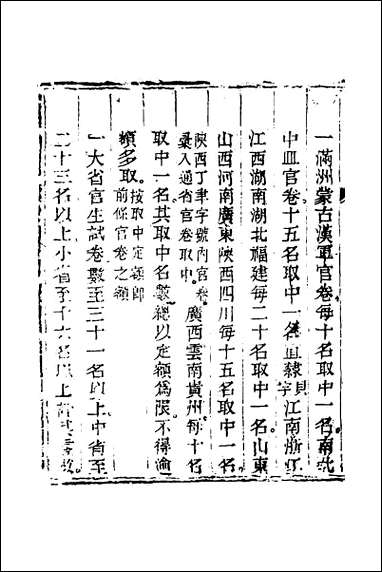 一滿洲蒙古漢軍官卷每十名取中一名南北
中皿官卷十五名取中一名直隸貝字江南浙江
江西湖南湖北福建每二十名取中一名山東
山西河南廣東陝西四川每十五名取中一名
陝西丁聿字號內官卷彙入通省官卷取中廣西雲南貴州每十名
取中一名其取中名數總以定額為限不得渝
額多取按取中定額即前條官卷之額
一大省官生試卷數至三十一名以上中省至
二十三名以上小省至十六名以上